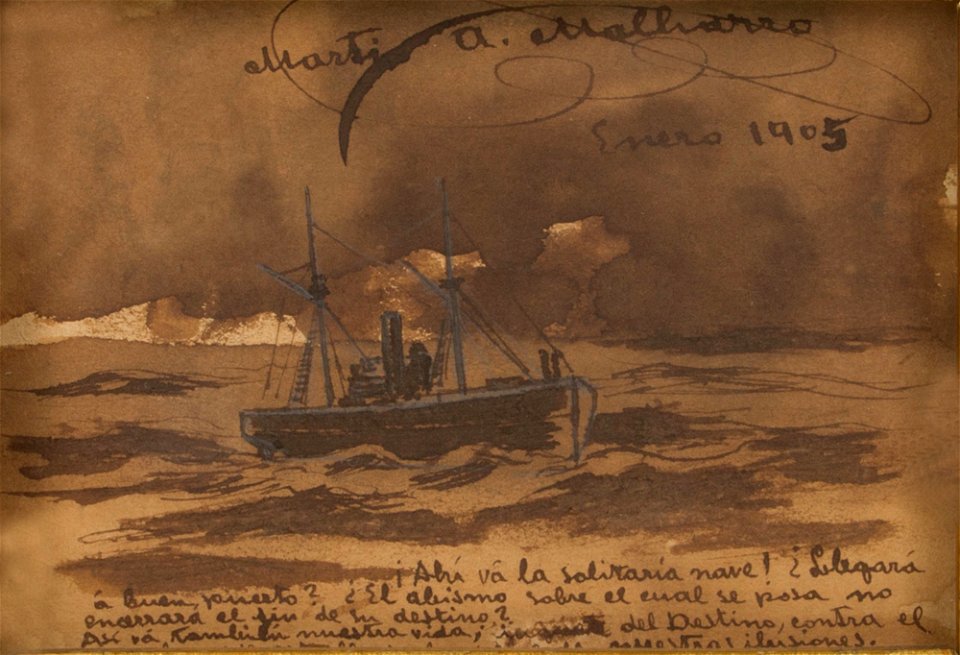 Martin A. Malharro
Enero 1905
¡Ahí vá la solitaria nave! ¿Llegará
á buen puerto? ¿El abismo sobre el cual se posa no
enarrará el fin de su destino?
Así vá, también nuestra vida, del Destino, contra el
nuestras ilusiones.